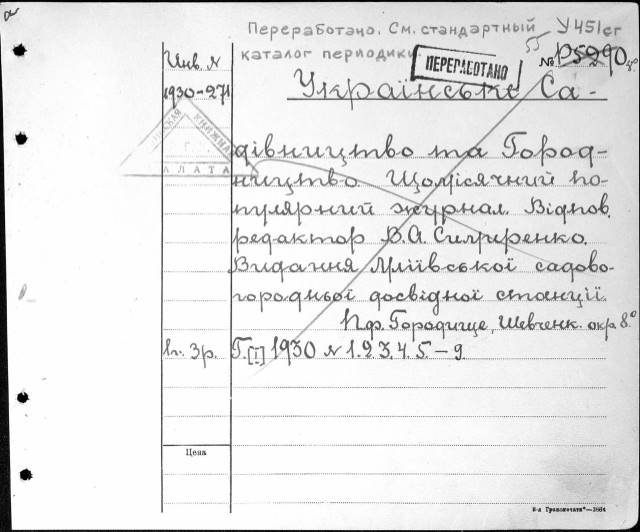 Переработано. См. стандартный У451ег
каталог периодики
ПЕРЕРАБОТАНО
Инв. N
№ Р5290
1930-271
Українське Са-
КНИЖНАЯ
ПАЛАТА
дівництво та Город-
ництво. Щомісячний по-
пулярний журнал. Відпов.
редактор В.А. Симиренко.
Видання Мліївської садово-
городньої досвідної станції.
Пф. Городище, Шевченк. окр. 8°
Г.[I] 1930 N 1.2.3.4.5-9.
Цена